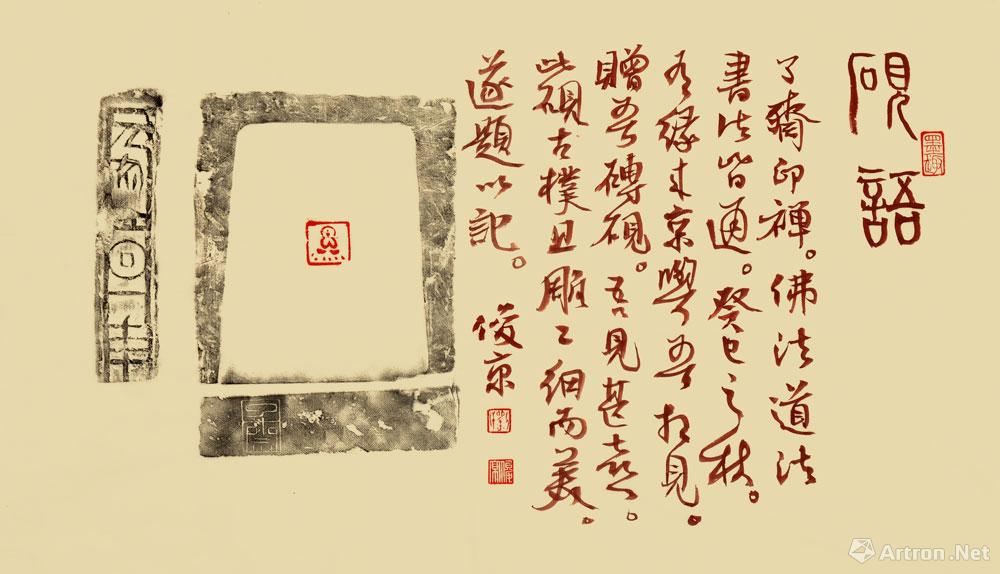 砚語
了齋印禅。佛法道法
書法皆通。癸巳之秋。
有缘来京與吾相見。
贈吾磚硯。吾見甚喜。
此硯古樸且雕工细而美。
遂題以記。
俊京
Artron.Net